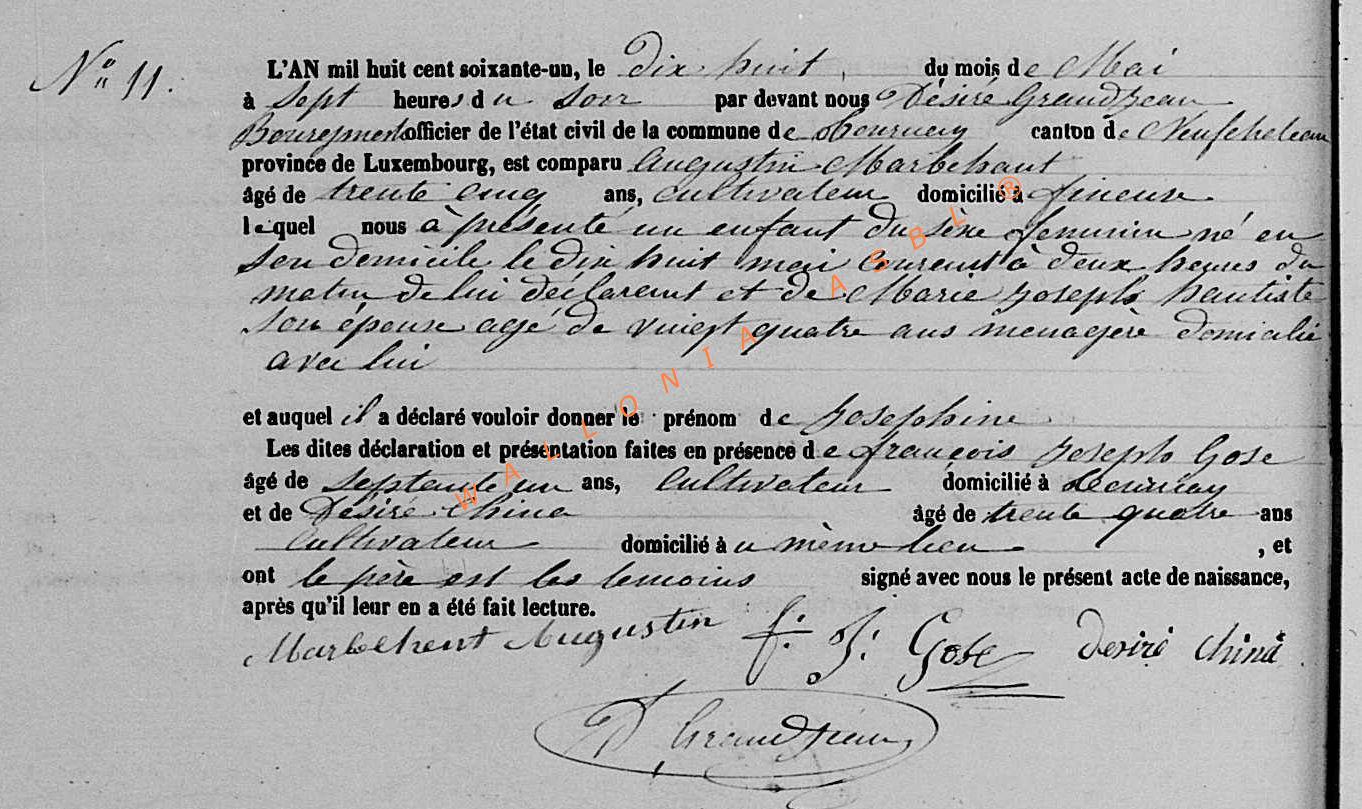 N° 11.
L'AN mil huit cent soixante-un, le dix huit du mois de Mai
à sept heures du soir par devant nous Désiré Grandjean
Bourgmestre officier de l'état civil de la commune de Tournay canton de Neufchateau
province de Luxembourg, est comparu Augustin Marbehant
âgé de trente cinq ans, cultivateur domicilié à fineuse
lequel nous à présenté un enfant du sèxe féminin né en
son domicile le dix huit mai courant à deux heures du
matin de lui déclarant et de Marie Joseph hautiste
son épouse agé de vingt quatre ans ménagère domicilié
avec lui
et auquel il a déclaré vouloir donner le prénom de Josephine
Les dites déclaration et présentation faites en présence de françois Joseph Gose
âgé de septante un ans, Cultivateur domicilié à Tournay
et de Désiré China âgé de trente quatre ans
Cultivateur domicilié à u même lieu , et
ont le père est les temoins signé avec nous le présent acte de naissance,
après qu'il leur en a été fait lecture.
Marbehant Augustin f. J. Gose desiré China
D Grandjean
WALLONIA ASBL ®